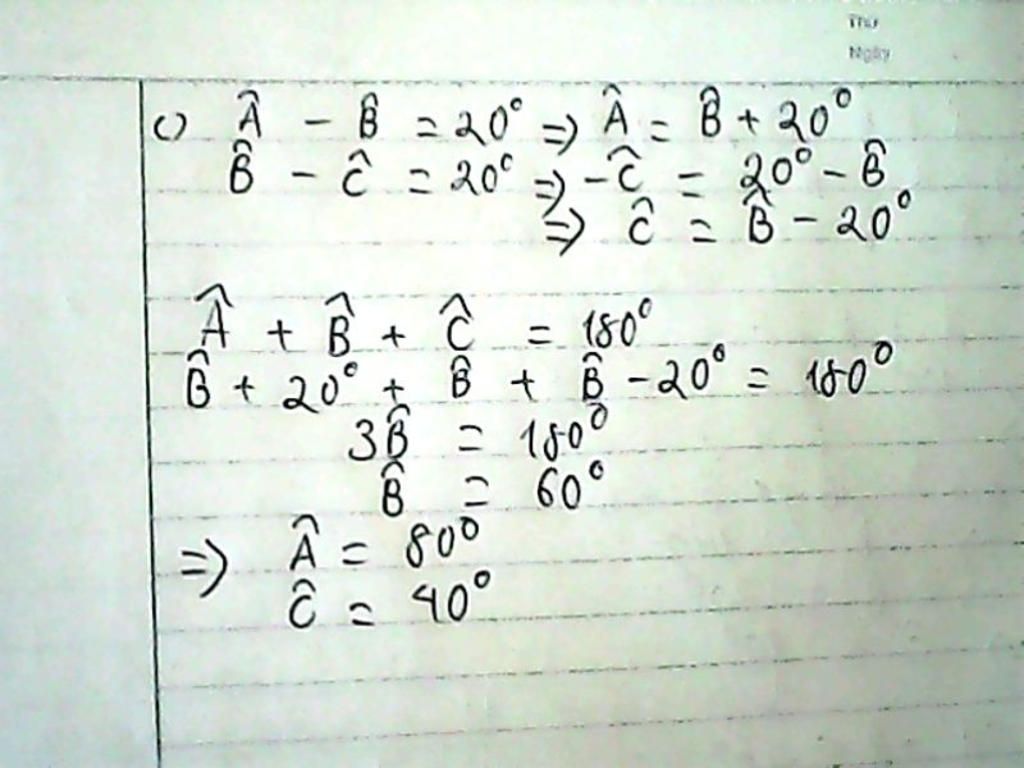 Thứ
Ngày
c) Â - B̂ = 20° => Â = B̂ + 20°
B̂ - Ĉ = 20° => -Ĉ = 20° - B̂
=> Ĉ = B̂ - 20°
Â + B̂ + Ĉ = 180°
B̂ + 20° + B̂ + B̂ - 20° = 180°
3B̂ = 180°
B̂ = 60°
=> Â = 80°
Ĉ = 40°